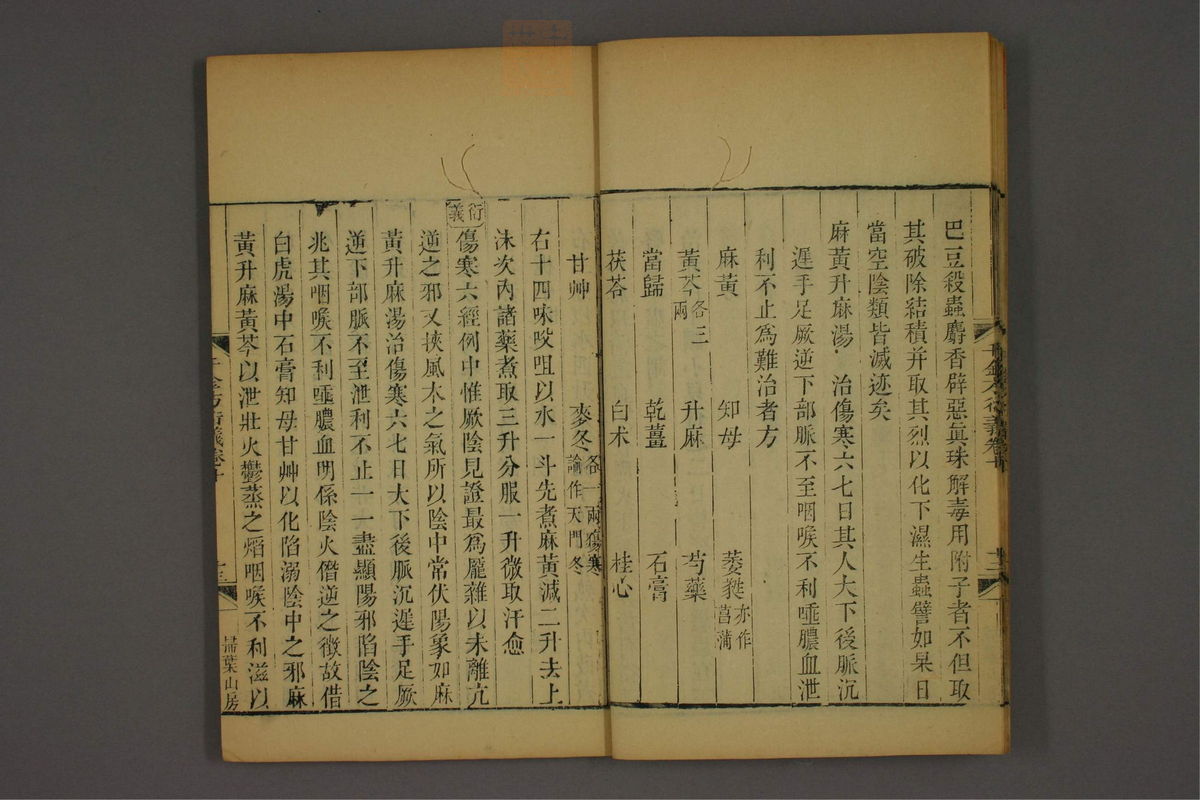 巴豆殺蟲麝香辟惡眞珠解毒用附子者不但取
其破除結積幷取其烈以化下濕生蟲譬如杲日
當空陰類皆滅迹矣
麻黃升麻湯 治傷寒六七日其人大下後脈沉
遲手足厥逆下部脈不至咽喉不利唾膿血泄
利不止爲難治者方
麻黃 知母 萎蕤亦作菖蒲
黃芩各三兩 升麻 芍藥
當歸 乾薑 石膏
茯苓 白朮 桂心
甘艸 麥冬各一兩傷寒論作天門冬
右十四味㕮咀以水一斗先煮麻黃減二升去上
沫次內諸藥煮取三升分服一升微取汗愈
衍義
傷寒六經例中惟厥陰見證最爲龐雜以未離亢
逆之邪又挾風木之氣所以陰中常伏陽象如麻
黃升麻湯治傷寒六七日大下後脈沉遲手足厥
逆下部脈不至泄利不止一一盡顯陽邪陷陰之
兆其咽喉不利唾膿血明係陰火僭逆之徴故借
白虎湯中石膏知母甘艸以化陷溺陰中之邪麻
黃升麻黃芩以泄壯火鬱蒸之熖咽喉不利滋以
千金方衍義卷十
掃葉山房